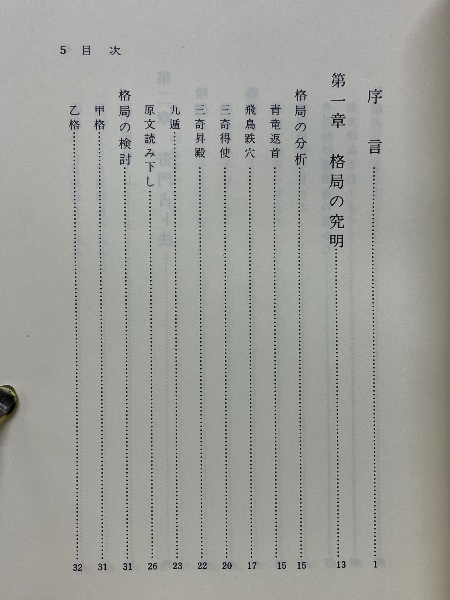 5 目 次
序 言 1
第一章 格局の究明 13
格局の分析 15
青竜返首 15
飛鳥跌穴 17
三奇得使 20
三奇昇殿 22
九遁 23
原文読み下し 26
格局の検討 31
甲格 31
乙格 32